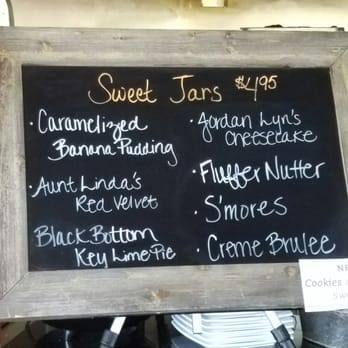 Sweet Jars $4.95
· Caramelized
Banana Pudding
· Aunt Linda's
Red Velvet
Black Bottom
Key Lime Pie
· Jordan Lyn's
Cheesecake
· Fluffer Nutter
· S'mores
· Creme Brulee
Cookies